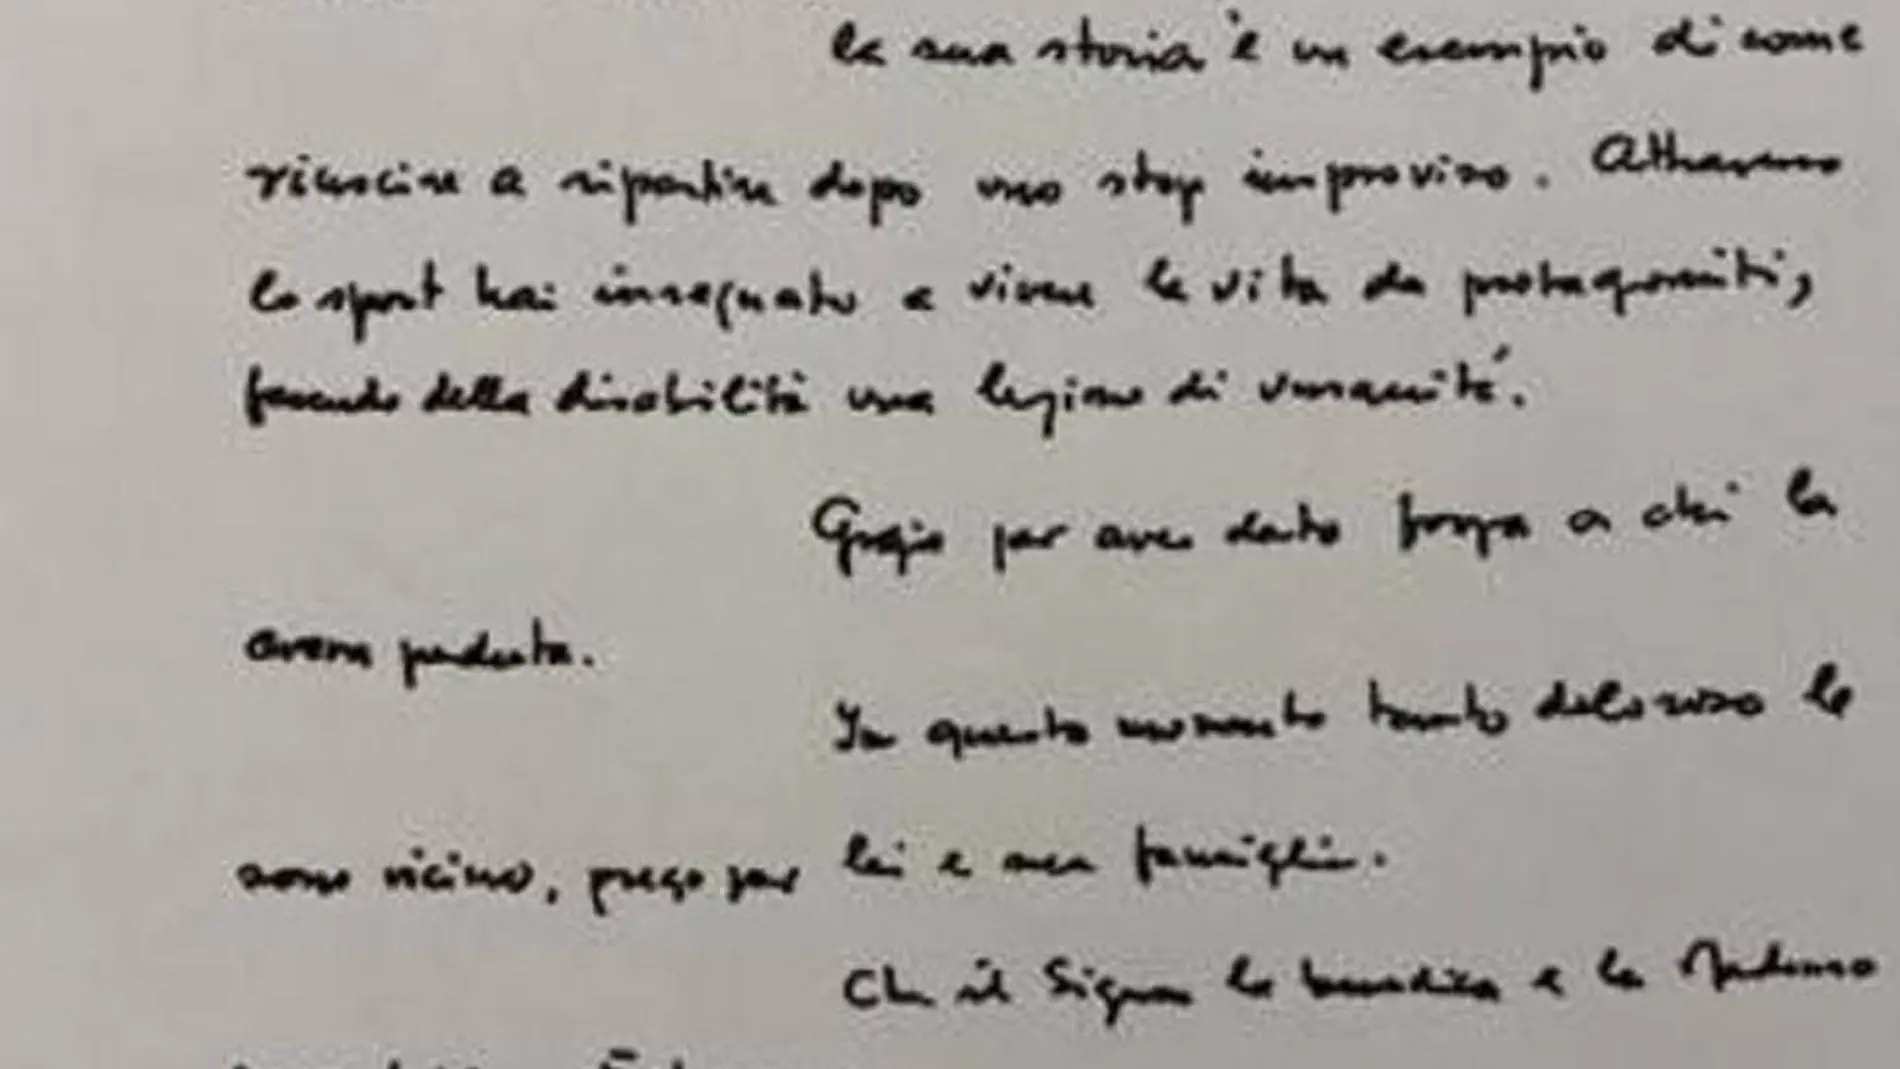 la sua storia è un esempio di come
riuscire a ripartire dopo uno stop improvviso. Attraverso
lo sport hai insegnato a vivere la vita da protagonisti,
facendo della disabilità una lezione di umanità.
Grazie per aver dato forza a chi la
aveva perduta.
In questo momento tanto doloroso le
sono vicino, prego per lei e sua famiglia.
Che il Signore la benedica e la Madonna